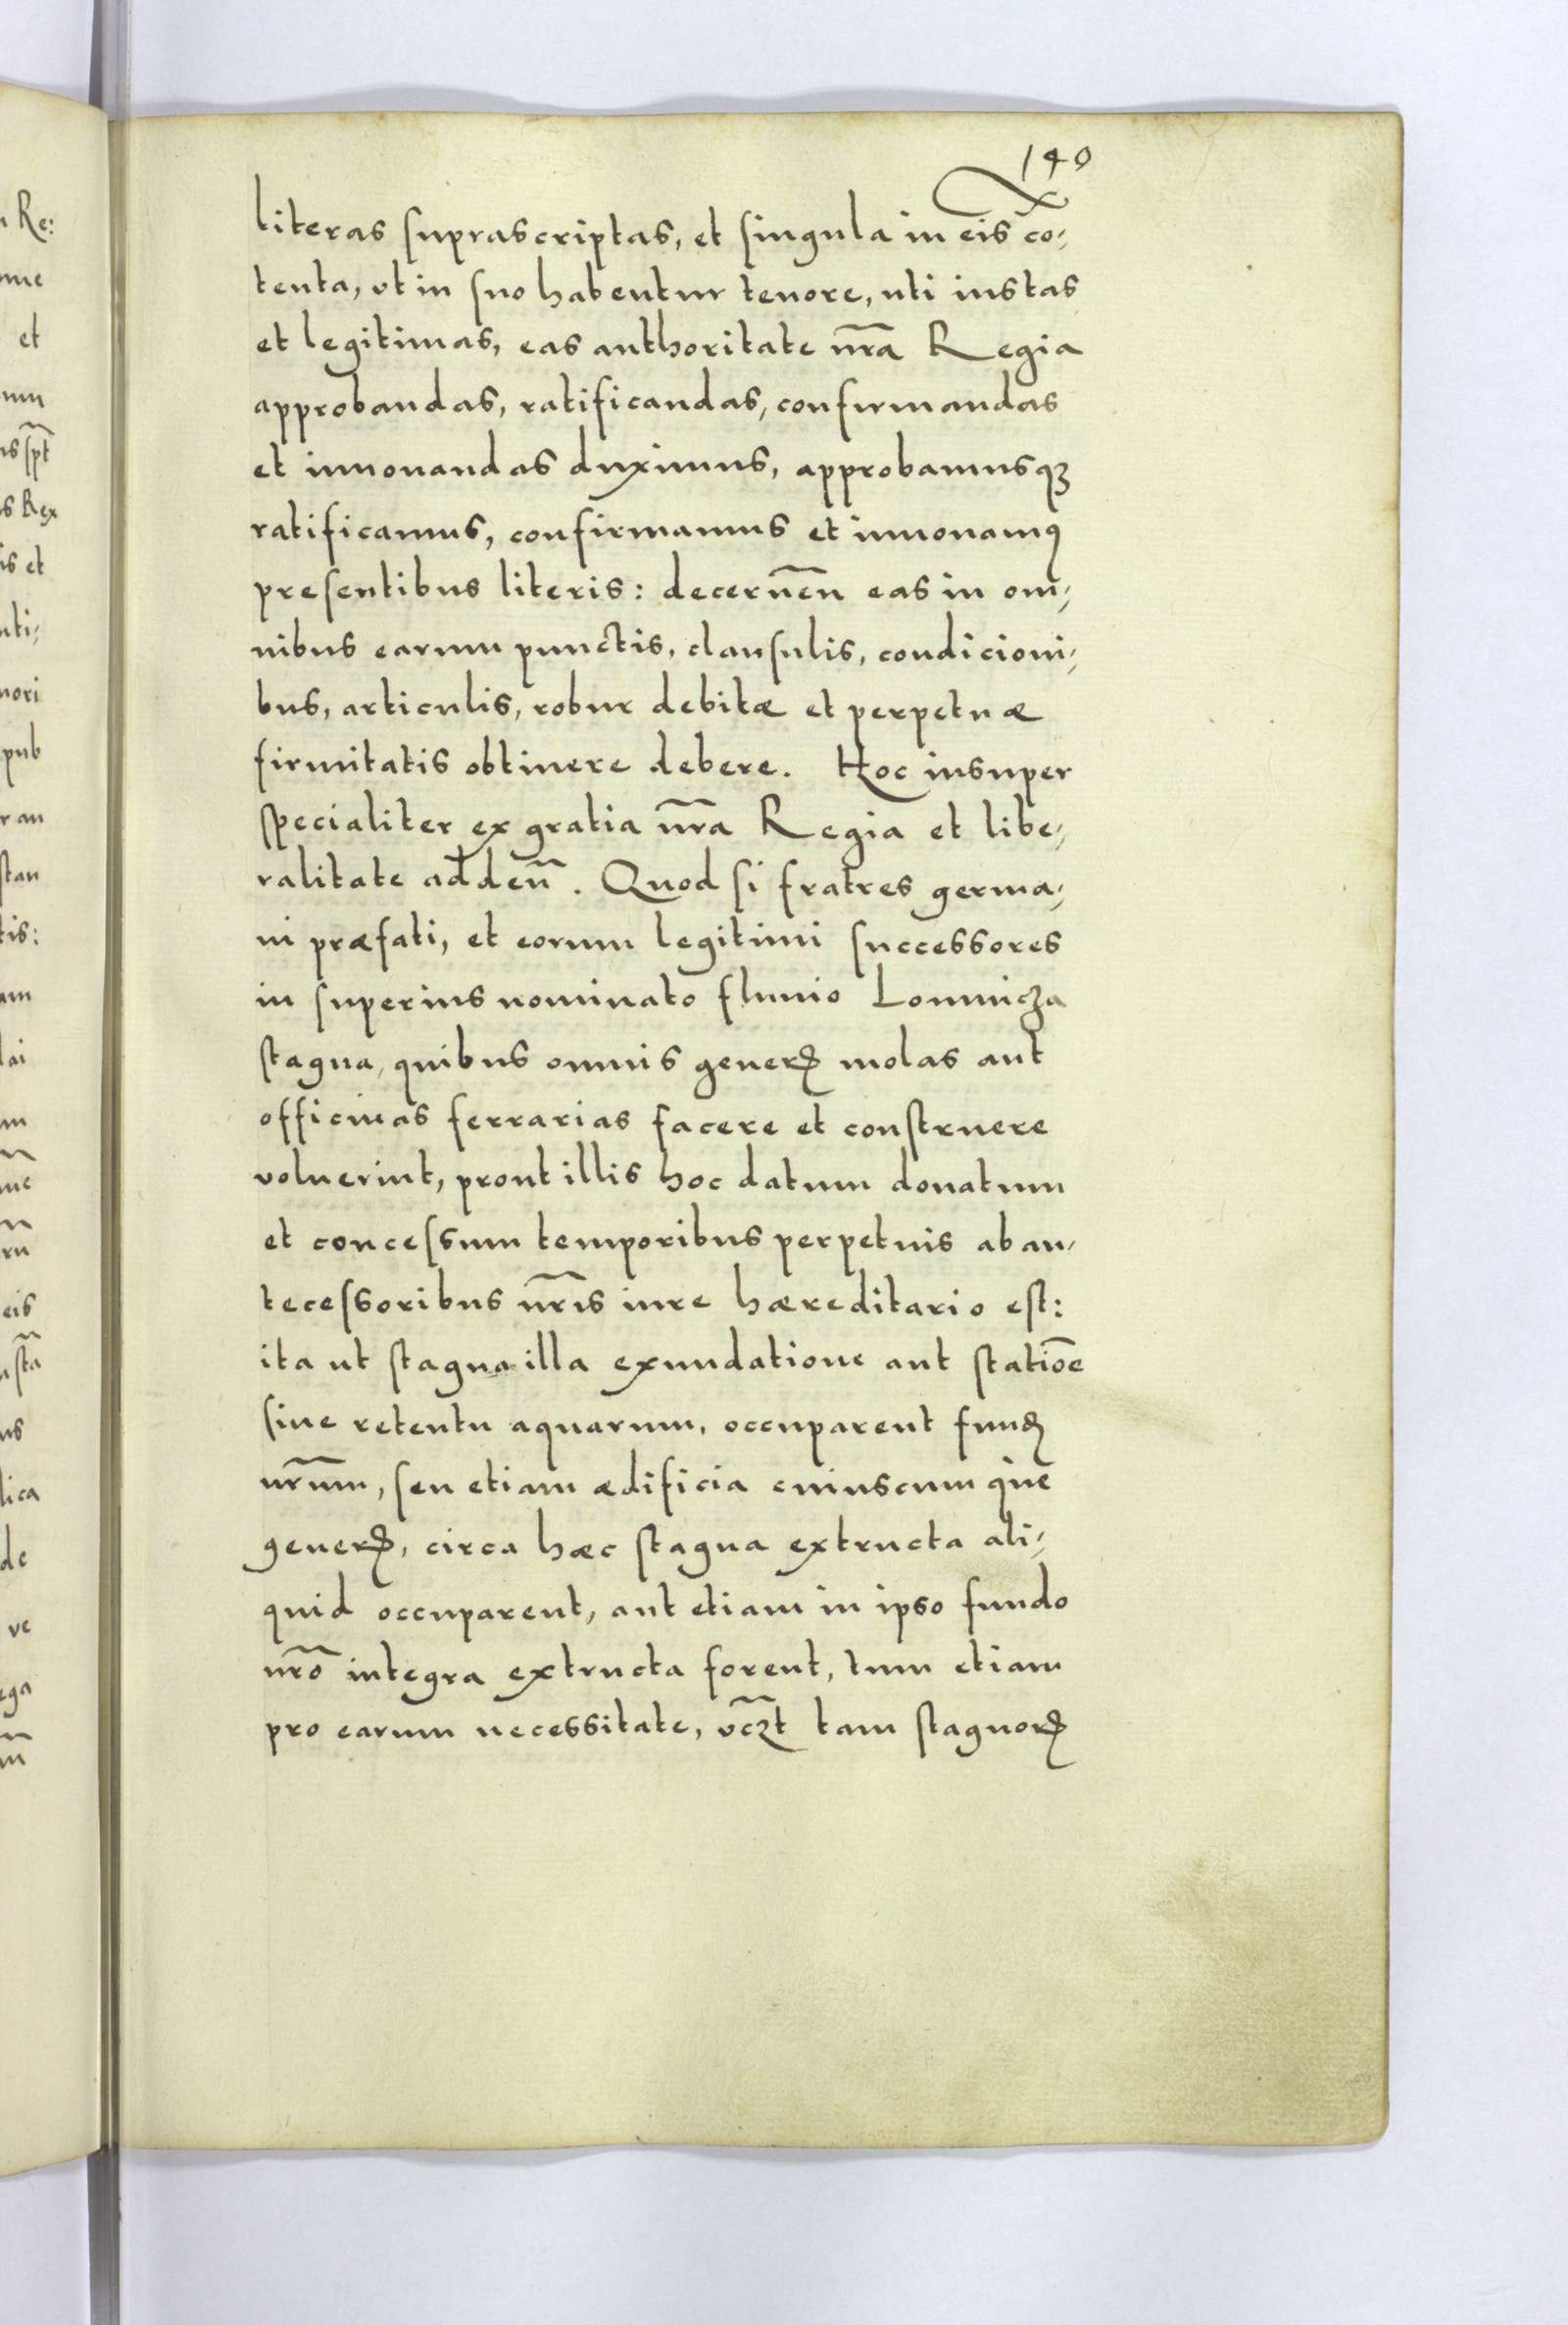 140
literas suprascriptas, et singula in eis cō-
tenta, vt in suo habentur tenore, uti iustas
et legitimas, eas authoritate nr̃a Regia
approbandas, ratificandas, confirmandas
et innouandas duximus, approbamusqꝫ
ratificamus, confirmamus et innouamꝰ
presentibus literis: decernẽn eas in om-
nibus earum punctis, clausulis, condicioni-
bus, articulis, robur debitæ et perpetuæ
firmitatis obtinere debere. Hoc insuper
specialiter ex gratia nr̃a Regia et libe-
ralitate addeñ. Quod si fratres germa-
ni præfati, et eorum legitimi successores
in superius nominato fluuio Lomnicza
stagna, quibus omnis generꝭ molas aut
officinas ferrarias facere et construere
voluerint, prout illis hoc datum donatum
et concessum temporibus perpetuis ab an-
tecessoribus nr̃is iure hæreditario est:
ita ut stagna illa exundatione aut statiōe
siue retentu aquarum, occuparent fundꝭ
nr̃um, seu etiam ædificia cuiuscumque
generꝭ, circa hæc stagna extructa ali-
quid occuparent, aut etiam in ipso fundo
nr̃o integra extructa forent, tum etiam
pro earum necessitate, vcꝫ̃t tam stagnorꝭ
n Re:
et
s Rex
is et
nori
pub
r an
stan
tis:
lai
eis
lica
de
ve
ega